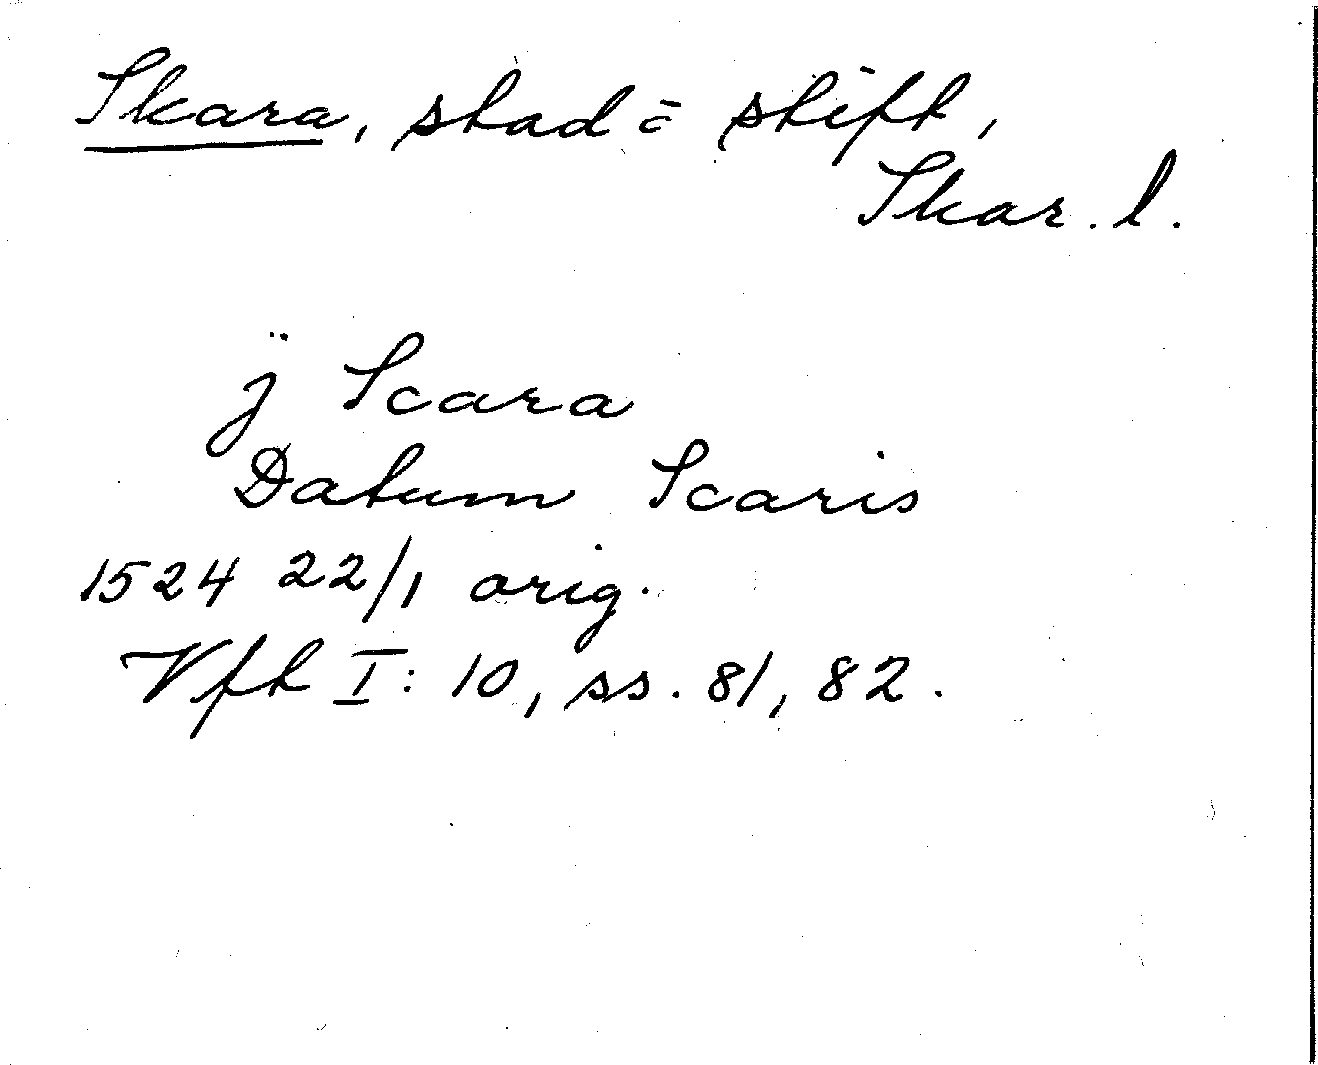 Skara, stad = stift,
Skar. l.
ÿ Scara
Datum Scaris
1524 22/1 orig.
Vft I: 10, ss. 81, 82.